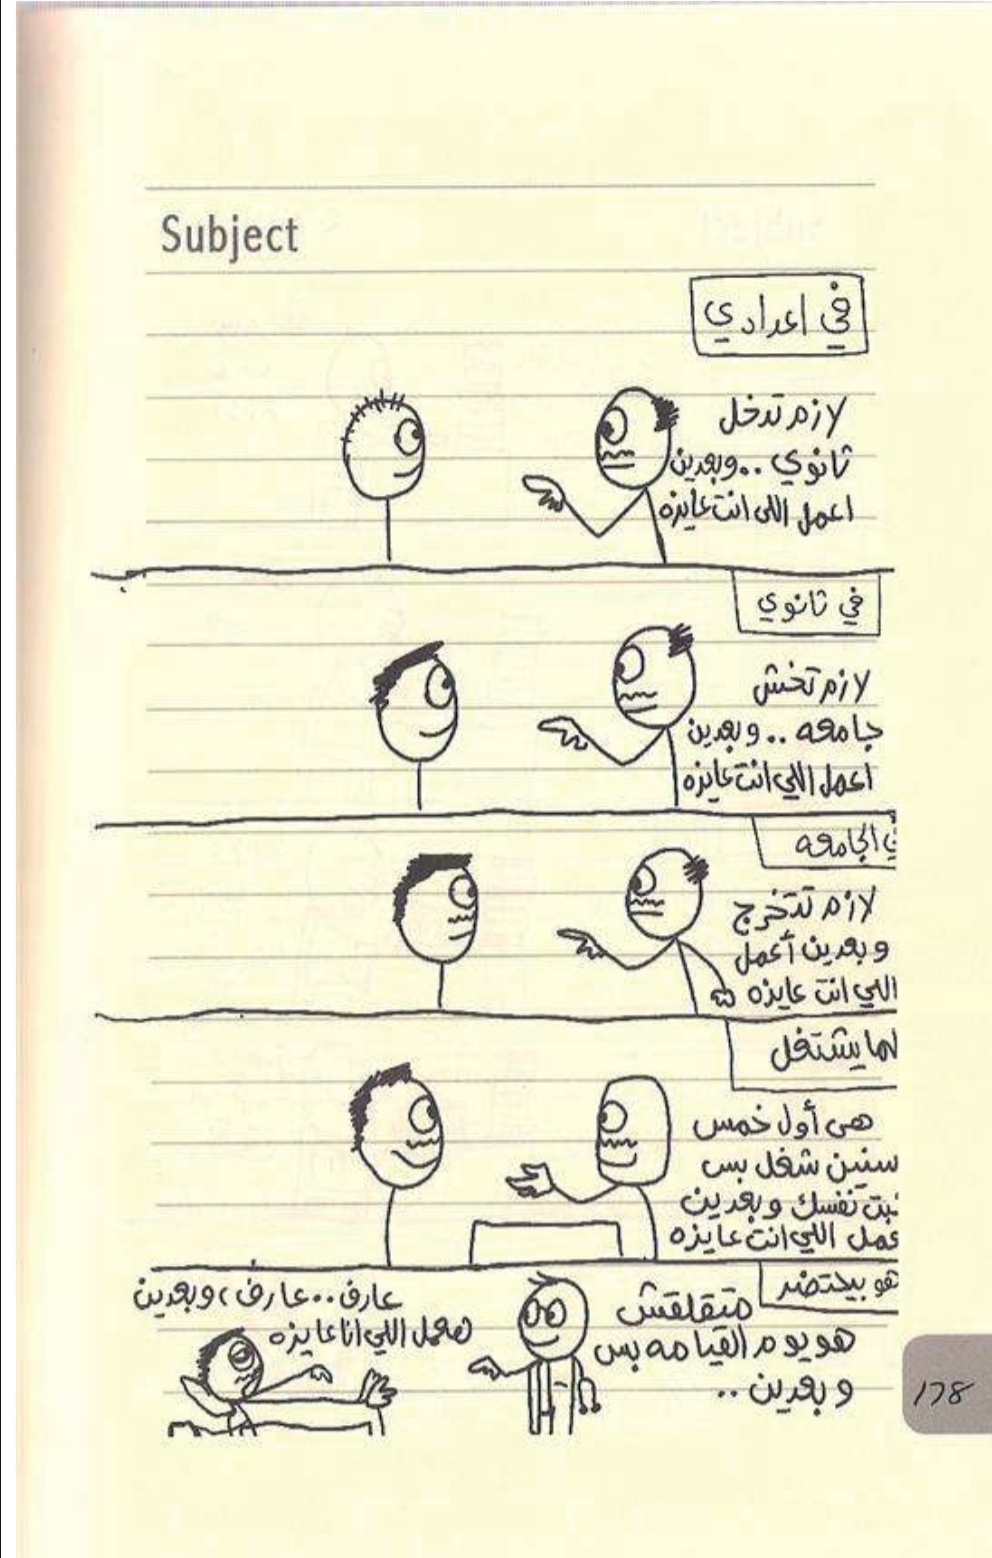 Subject
في اعدادي
لازم تدخل
ثانوي .. وبعدين
اعمل اللي انت عايزه
في ثانوي
لازم تخش
جامعه .. وبعدين
اعمل اللي انت عايزه
ي الجامعه
لازم تتخرج
وبعدين أعمل
اللي انت عايزه
لما يشتغل
هى أول خمس
سنين شغل بس
ثبت نفسك وبعدين
عمل اللي انت عايزه
هو بيحتضر
متقلقش
هو يوم القيامه بس
وبعدين ..
عارف .. عارف ، وبعدين
هعمل اللي انا عايزه
178